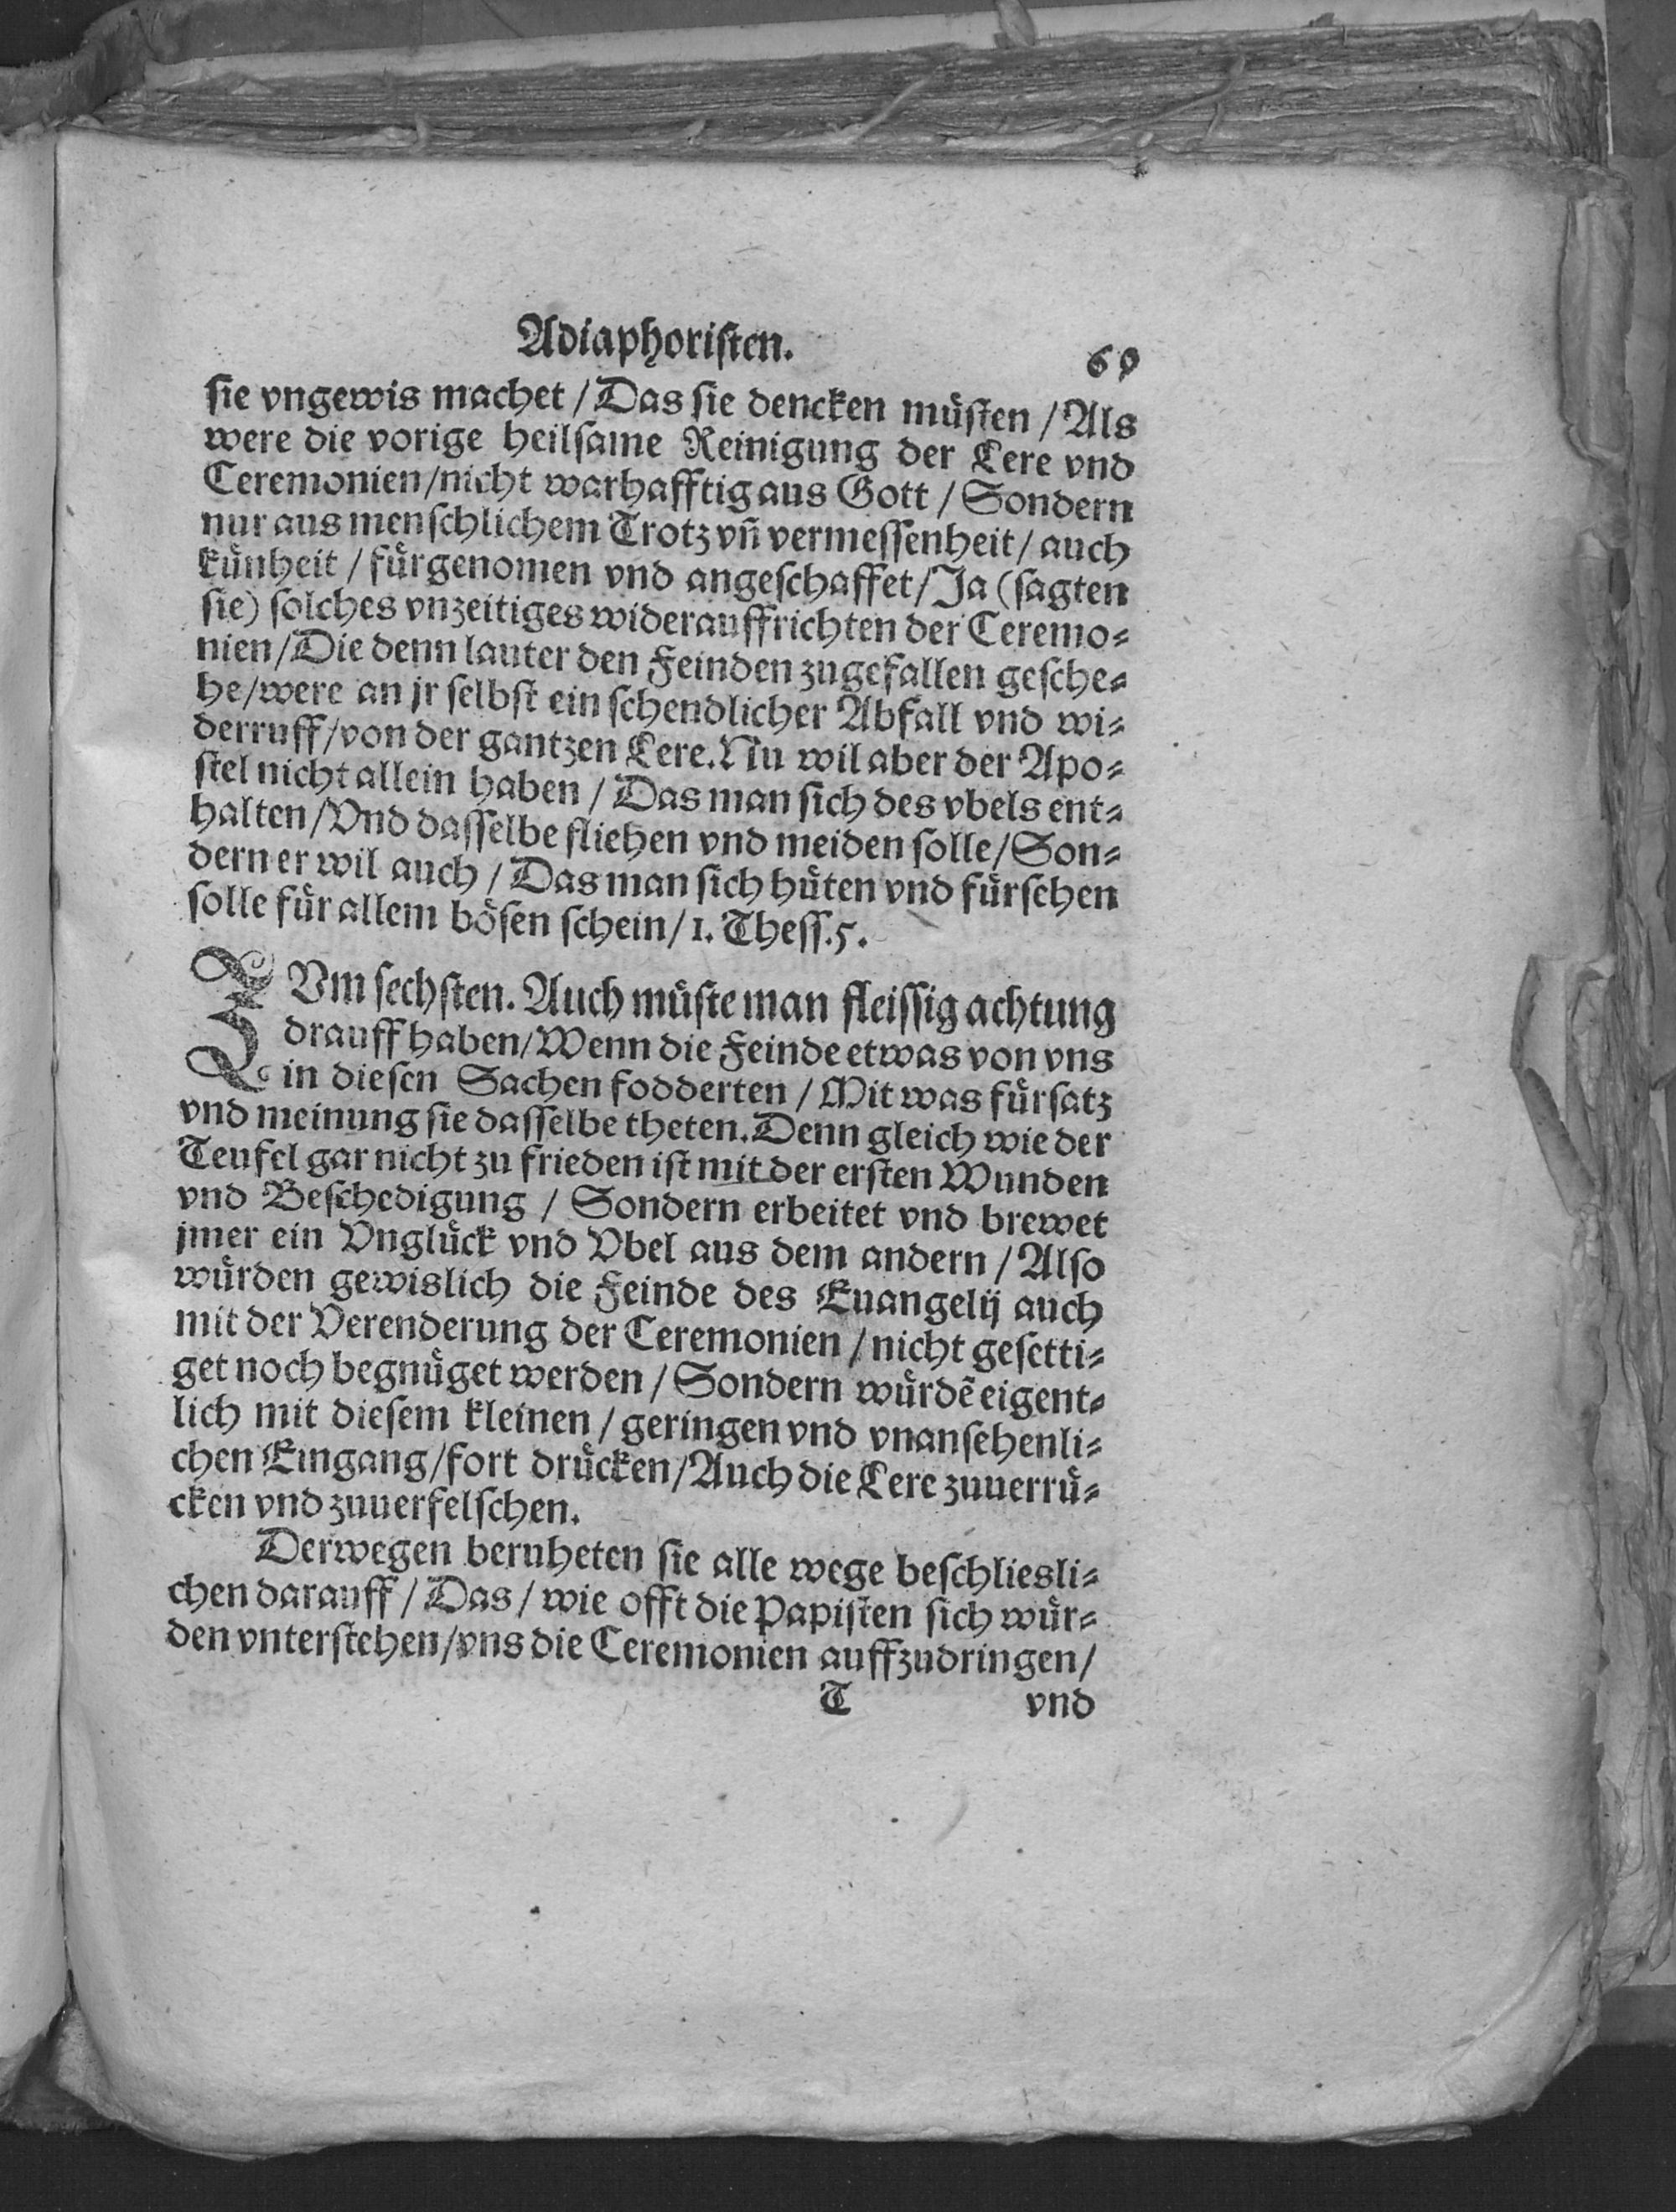 Adiaphoristen. 69
sie vngewis machet / Das sie dencken müsten / Als
were die vorige heilsame Reinigung der Lere vnd
Ceremonien / nicht warhafftig aus Gott / Sondern
nur aus menschlichem Trotz vñ vermessenheit / auch
künheit / fürgenomen vnd angeschaffet / Ja (sagten
sie) solches vnzeitiges widerauffrichten der Ceremo⸗
nien / Die denn lauter den Feinden zugefallen gesche⸗
he / were an jr selbst ein schendlicher Abfall vnd wi⸗
derruff / von der gantzen Lere. Nu wil aber der Apo⸗
stel nicht allein haben / Das man sich des vbels ent⸗
halten / Vnd dasselbe fliehen vnd meiden solle / Son⸗
dern er wil auch / Das man sich hüten vnd fürsehen
solle für allem bösen schein / 1. Thess. 5.
ZVm sechsten. Auch müste man fleissig achtung
drauff haben / Wenn die Feinde etwas von vns
in diesen Sachen fodderten / Mit was fürsatz
vnd meinung sie dasselbe theten. Denn gleich wie der
Teufel gar nicht zu frieden ist mit der ersten Wunden
vnd Beschedigung / Sondern erbeitet vnd brewet
jmer ein Vnglück vnd Vbel aus dem andern / Also
würden gewislich die Feinde des Euangelij auch
mit der Verenderung der Ceremonien / nicht gesetti⸗
get noch begnüget werden / Sondern würdẽ eigent⸗
lich mit diesem kleinen / geringen vnd vnansehenli⸗
chen Eingang / fort drücken / Auch die Lere zuuerrü⸗
cken vnd zuuerfelschen.
Derwegen beruheten sie alle wege beschliesli⸗
chen darauff / Das / wie offt die Papisten sich wür⸗
den vnterstehen / vns die Ceremonien auffzudringen /
T vnd